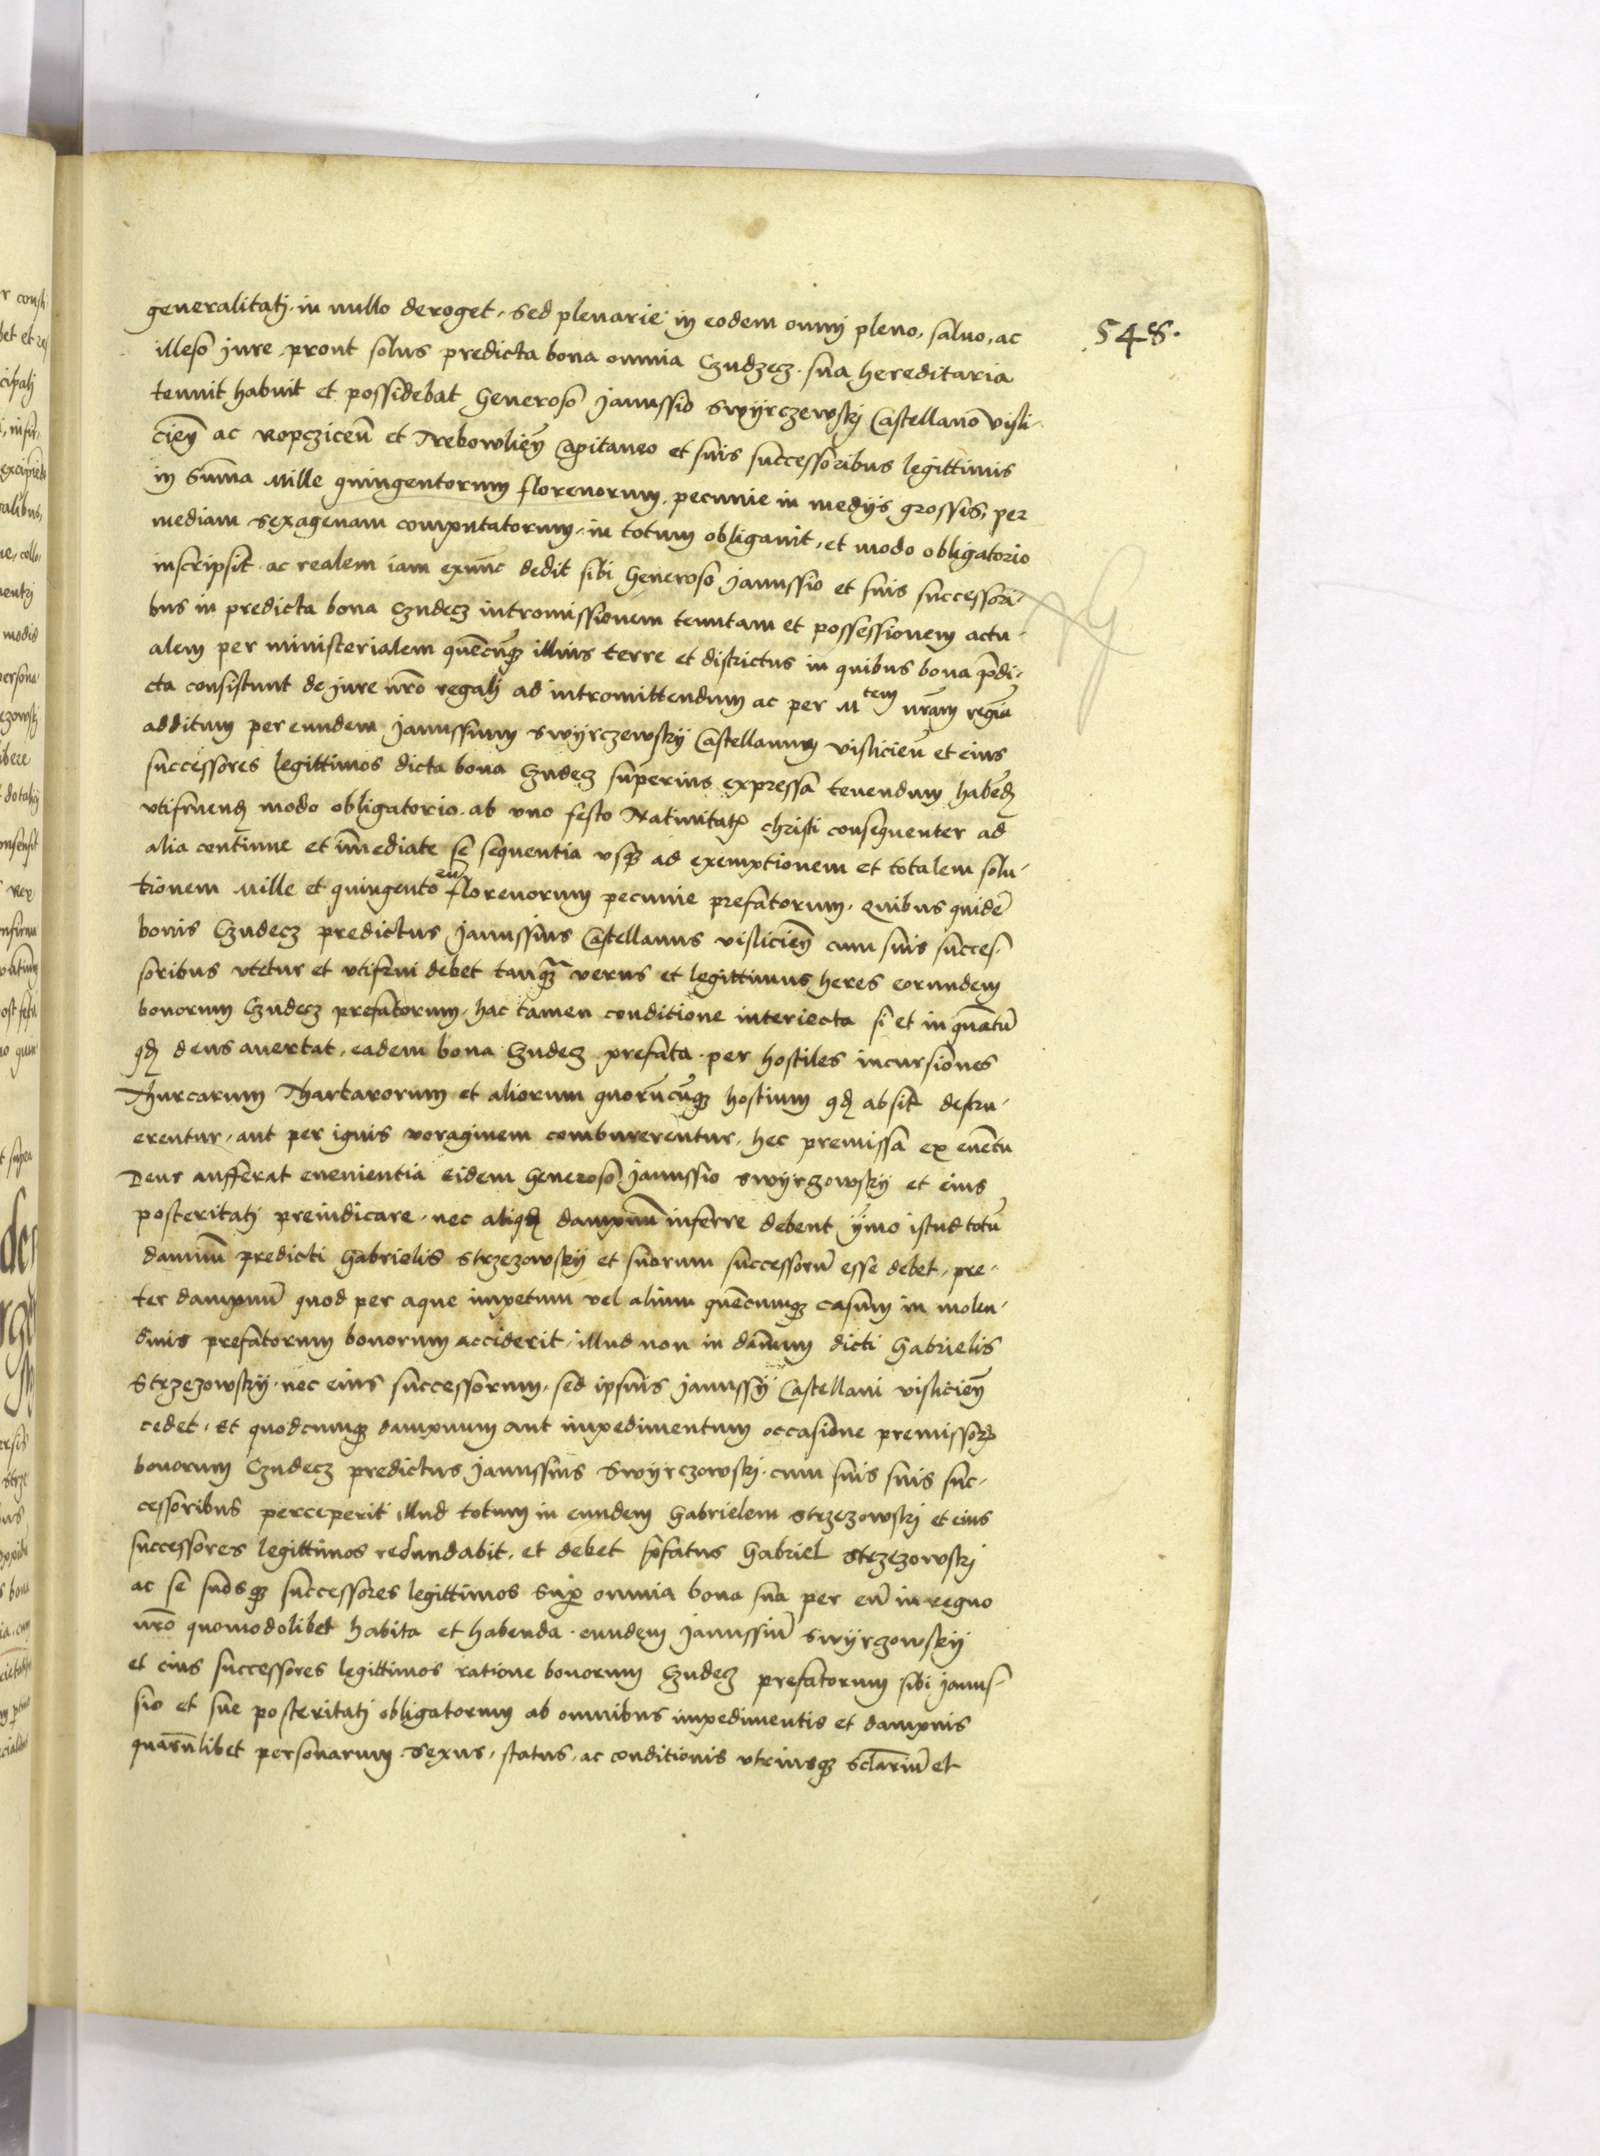 548.
generalitatj in nullo deroget, sed plenarie in eodem omnj pleno, saluo, ac
illeso jure, prout solus predicta bona omnia Czudzecz sua hereditaria
tenuit habuit et possidebat Generoso Janussio Swyrczewskj Castellano visli-
cieñ ac Ropcziceñ et Trebowlieñ Capitaneo et suis successoribus legittimis
in Suma Mille quingentorum florenorum, pecunie in medijs grossis, per
mediam sexagenam computatorum, in totum obligauit, et modo obligatorio
inscripsit ac realem iam exnunc dedit sibi Generoso Janussio et suis successori-
bus in predicta bona Czudecz intromissionem tenutam et possessionem actu-
alem per ministerialem quẽcũqꝫ illius terre et districtus in quibus bona p̃di-
cta consistunt de jure nr̃o regalj ad intromittendum ac per M tem nr̃am regiã
additum per eundem Janussium Swyrczewskj Castellanum visliciẽn et eius
successores legittimos dicta bona Czudecz superius expressa tenendum habẽd
vtifruend modo obligatorio ab vno festo Natiuitatꝭ christi consequenter ad
alia continue et ĩmediate se sequentia vsqꝫ ad exemptionem et totalem solu-
tionem Mille et quingento rum florenorum pecunie prefatorum. Quibus quidẽ
bonis Czudecz predictus Janussius Castellanus visliciẽn cum suis succes-
soribus vtetur et vtifrui debet tanqꝫ verus et legittimus heres eorundem
bonorum Czudecz prefatorum, hac tamen conditione interiecta si et in quãtũ
qđ deus auertat, eadem bona Czudecz prefata per hostiles incursiones
Thurcarum Thartarorum et aliorum quorũcũqꝫ hostium qđ absit destru-
erentur, aut per ignis voraginem comburerentur, hec premissa ex euẽtu
Deus aufferat euenientia eidem Generoso Janussio Swyrzowskij et eius
posteritatj preiudicare, nec aliqđ dampnũ inferre debent ymo istud totũ
damnũ predicti Gabrielis Strzezowskij et suorum successorũ esse debet, pre-
ter dampnũ quod per aque impetum vel alium quẽcumqꝫ casum in molen-
dinis prefatorum bonorum acciderit, illud non in dãnum dicti Gabrielis
Strzezowskij nec eius successorum, sed ipsius Janussij Castellani visliciẽn
cedet, Et quodcumqꝫ dampnum aut impedimentum occasione premissorꝫ
bonorum Czudecz predictus Janussius Swyrczowskj cum suis suis suc-
cessoribus perceperit illud totum in eundem Gabrielem Strzezowskj et eius
successores legittimos redundabit, et debet p̃fatus Gabriel Strzezowskj
ac se suosqꝫ successores legittimos sup̃ omnia bona sua per eũ in regno
nr̃o quomodolibet habita et habenda eundem Janussiũ Swyrzowskij
et eius successores legittimos ratione bonorum Czudecz prefatorum sibi Janus-
sio et sue posteritatj obligatorum ab omnibus impedimentis et dampnis
quarũlibet personarum sexus, status, ac conditionis vtriusqꝫ sc̃lariũ et